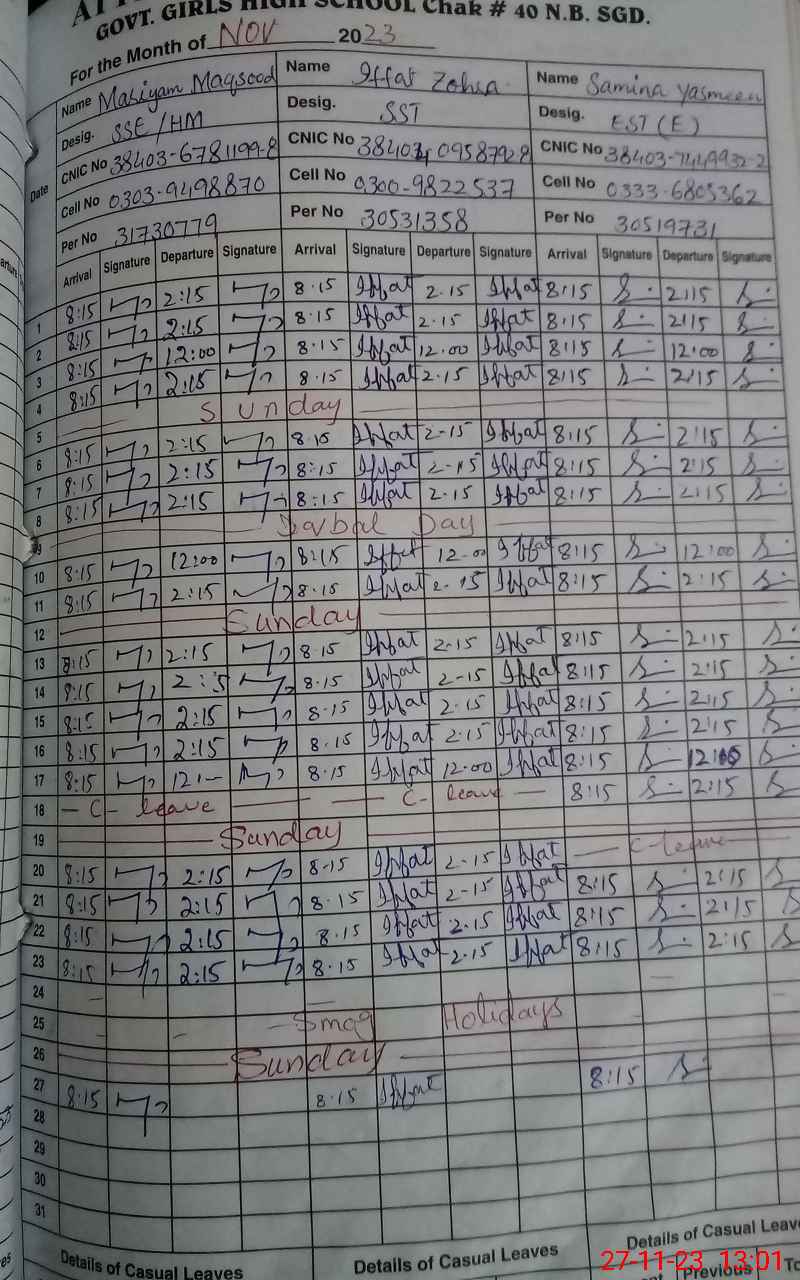 GOVT. GIRLS HIGH SCHOOL Chak # 40 N.B. SGD.
For the Month of Nov 2023
Date
Name Mariyam Maqsood Name Iffat Zohra Name Samina Yasmeen
Desig. SSE/HM Desig. SST Desig. EST (E)
CNIC No 38403-6781199-8 CNIC No CNIC No
Cell No 0303-9498870 Cell No 0300-9822537 Cell No 0333-6805362
Per No 31730779 Per No 30531358 Per No 30519731
Arrival Signature Departure Signature Arrival Signature Departure Signature Arrival Signature Departure Signature
1 8:15 2:15 8.15 Iffat 2.15 Iffat 8:15 2:15
2 8:15 2:15 8.15 Iffat 2.15 Iffat 8:15 2:15
3 8:15 12:00 8.15 Iffat 12.00 Iffat 8:15 12:00
4 8:15 2:15 8.15 Iffat 2.15 Iffat 8:15 2:15
5 Sunday
6 8:15 2:15 8.15 Iffat 2-15 Iffat 8:15 2:15
7 8:15 2:15 8:15 Iffat 2-15 Iffat 8:15 2:15
8 8:15 2:15 8:15 Iffat 2.15 Iffat 8:15 2:15
9 Day
10 8:15 12:00 8:15 Iffat 12-00 Iffat 8:15 12:00
11 8:15 2:15 8.15 Iffat 2-15 Iffat 8:15 2:15
12 Sunday
13 8:15 2:15 8.15 Iffat 2-15 Iffat 8:15 2:15
14 8:15 2:15 8.15 Iffat 2-15 Iffat 8:15 2:15
15 8:15 2:15 8.15 Iffat 2.15 Iffat 8:15 2:15
16 8:15 2:15 8.15 Iffat 2.15 Iffat 8:15 2:15
17 8:15 12:- 8.15 Iffat 12.00 Iffat 8:15 12:00
18 - C- leave - C- leave - 8:15 2:15
19 Sunday
20 8:15 2:15 8-15 Iffat 2-15 Iffat - C-leave
21 8:15 2:15 8.15 Iffat 2-15 Iffat 8:15 2:15
22 8:15 2:15 8.15 Iffat 2.15 Iffat 8:15 2:15
23 8:15 2:15 8.15 Iffat 2.15 Iffat 8:15 2:15
24
25 Smog Holidays
26 Sunday
27 8:15 8.15 Iffat 8:15
28
29
30
31
Details of Casual Leaves Details of Casual Leaves Details of Casual Leave
Previous
27-11-23 13:01